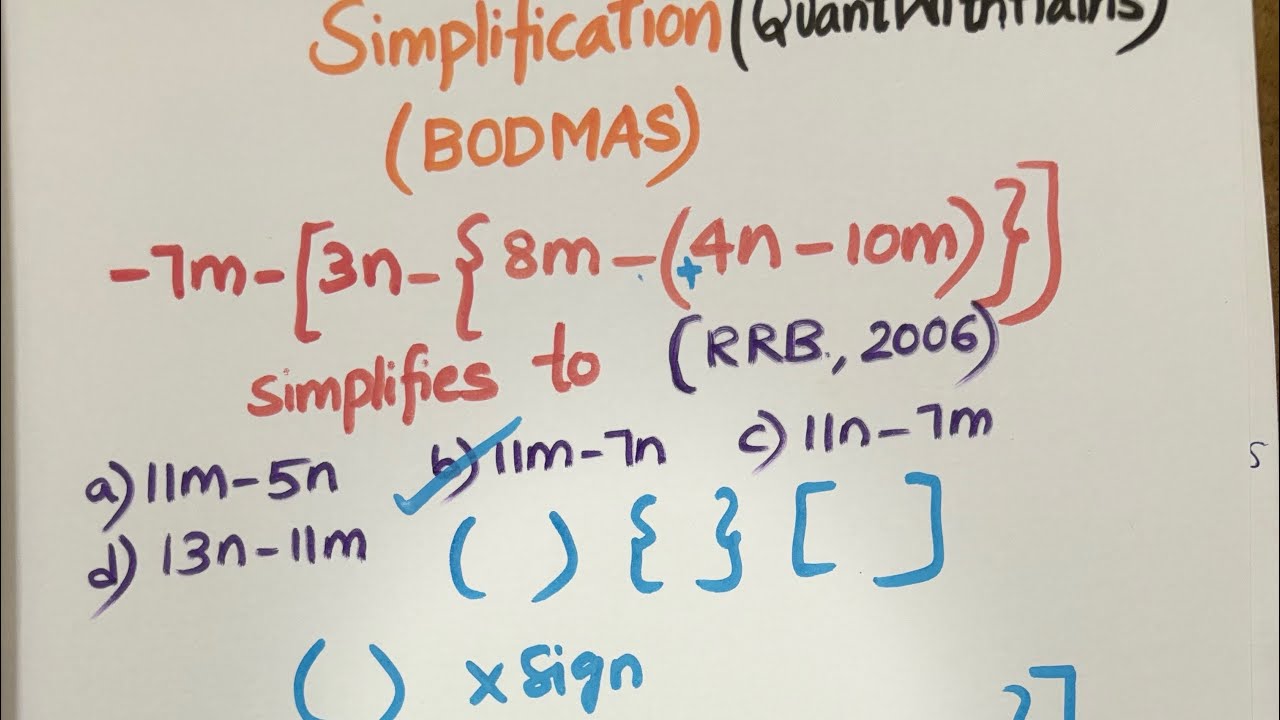 Simplification (QuantWithHains)
(BODMAS)
-7m-[3n-{8m-(+4n-10m)}]
simplifies to (RRB., 2006)
a) 11m-5n b) 11m-7n c) 11n-7m
d) 13n-11m ( ) { } [ ]
( ) × Sign
}]